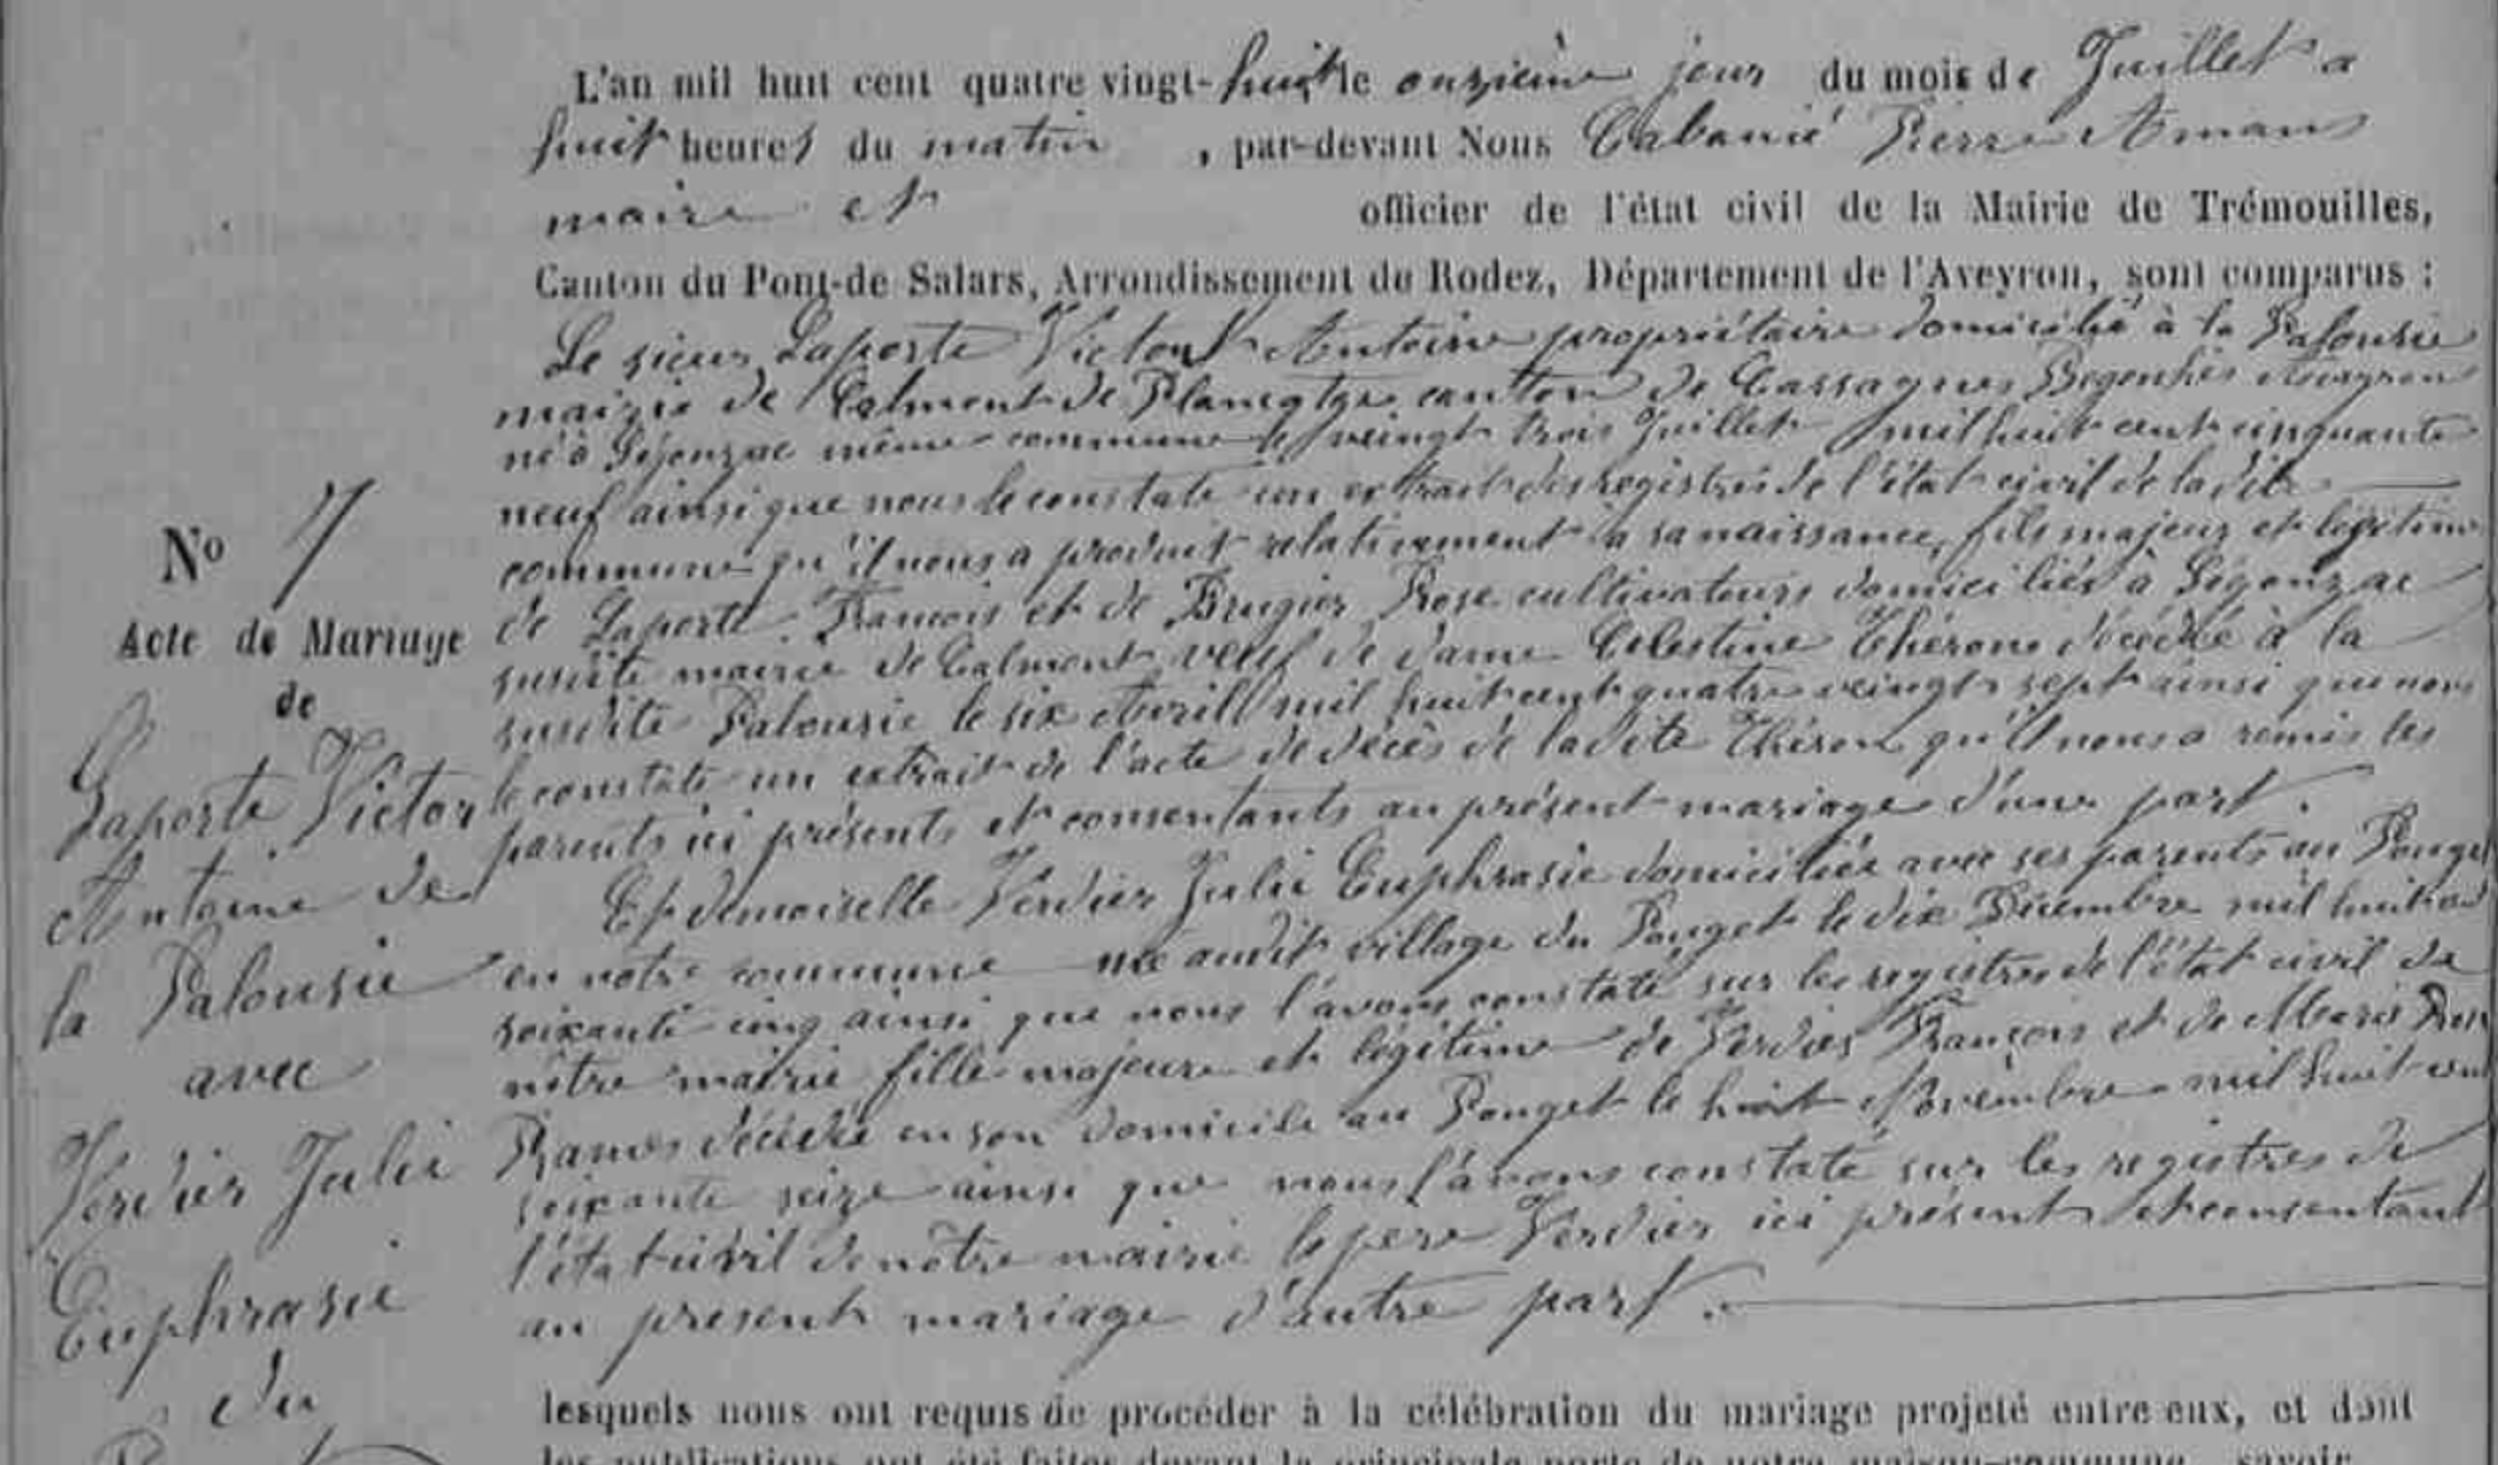 L'an mil huit cent quatre vingt-huit le onzième jour du mois de Juillet a
huit heures du matin , par-devant Nous Cabanié Pierre Amans
maire et officier de l'état civil de la Mairie de Trémouilles,
Canton du Pont-de Salars, Arrondissement de Rodez, Département de l'Aveyron, sont comparus :
Le sieur Laporte Victor Antoine propriétaire domicilié à la Palousie
mairie de Calmont de Plancatge canton de Cassagnes Bégonhès Aveyron
né à Ségonzac même commune le veingt trois Juillet mil huit cent cinquante
neuf ainsi que nous le constate un extrait des registres de l'état civil de la dite
commune qu'il nous a produit relativement a sa naissance, fils majeur et légitime
de Laporte François et de Brugier Rose cultivateurs domiciliés à Ségonzac
susdite mairie de Calmont veuf de dame Celestine Théron décédée à la
susdite Palousie le six Avrill mil huit cent quatre veingt sept ainsi que nous
le constate un extrait de l'acte de décès de ladite Théron qu'il nous a remis les
parents ici présents et consentants au présent mariage d'une part.
Et demoiselle Verdier Julie Euphrasie domiciliée avec ses parents au Pouget
en notre commune née audit village du Pouget le dix Décembre mil huit cent
soixante cinq ainsi que nous l'avons constaté sur les registres de l'état civil de
nôtre mairie fille majeure et légitime de Verdier François et de Marie Rose
Ramos décédée en son domicile au Pouget le huit Novembre mil huit cent
soixante seize ainsi que nous l'avons constaté sur les registres de
l'état civil de nôtre mairie le père Verdier ici présent et consentant
au présent mariage d'autre part.
lesquels nous ont requis de procéder à la célébration du mariage projeté entre eux, et dont
les publications ont été faites devant la principale porte de notre maison-commune, savoir
No 7
Acte de Mariage
de
Laporte Victor
Antoine de
la Palousie
avec
Verdier Julie
Euphrasie
du